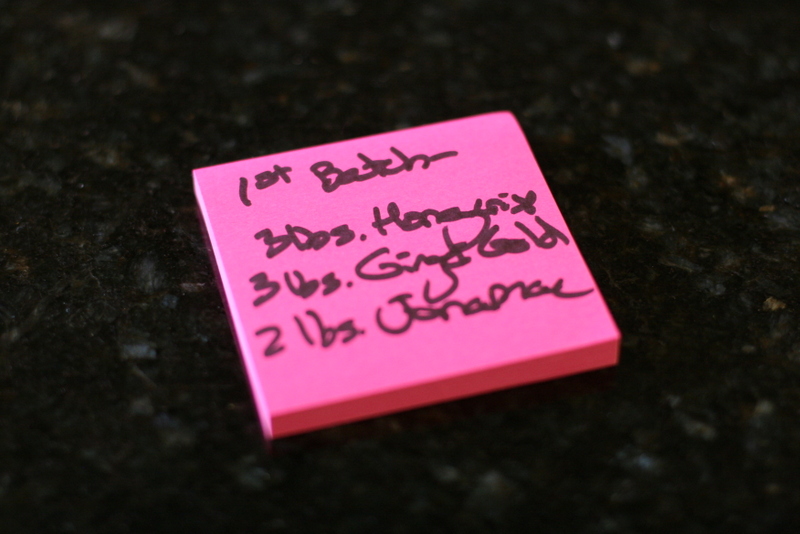 1st Batch
3 lbs. Honeycrisp
3 lbs. Ginger Gold
2 lbs. Jonamac